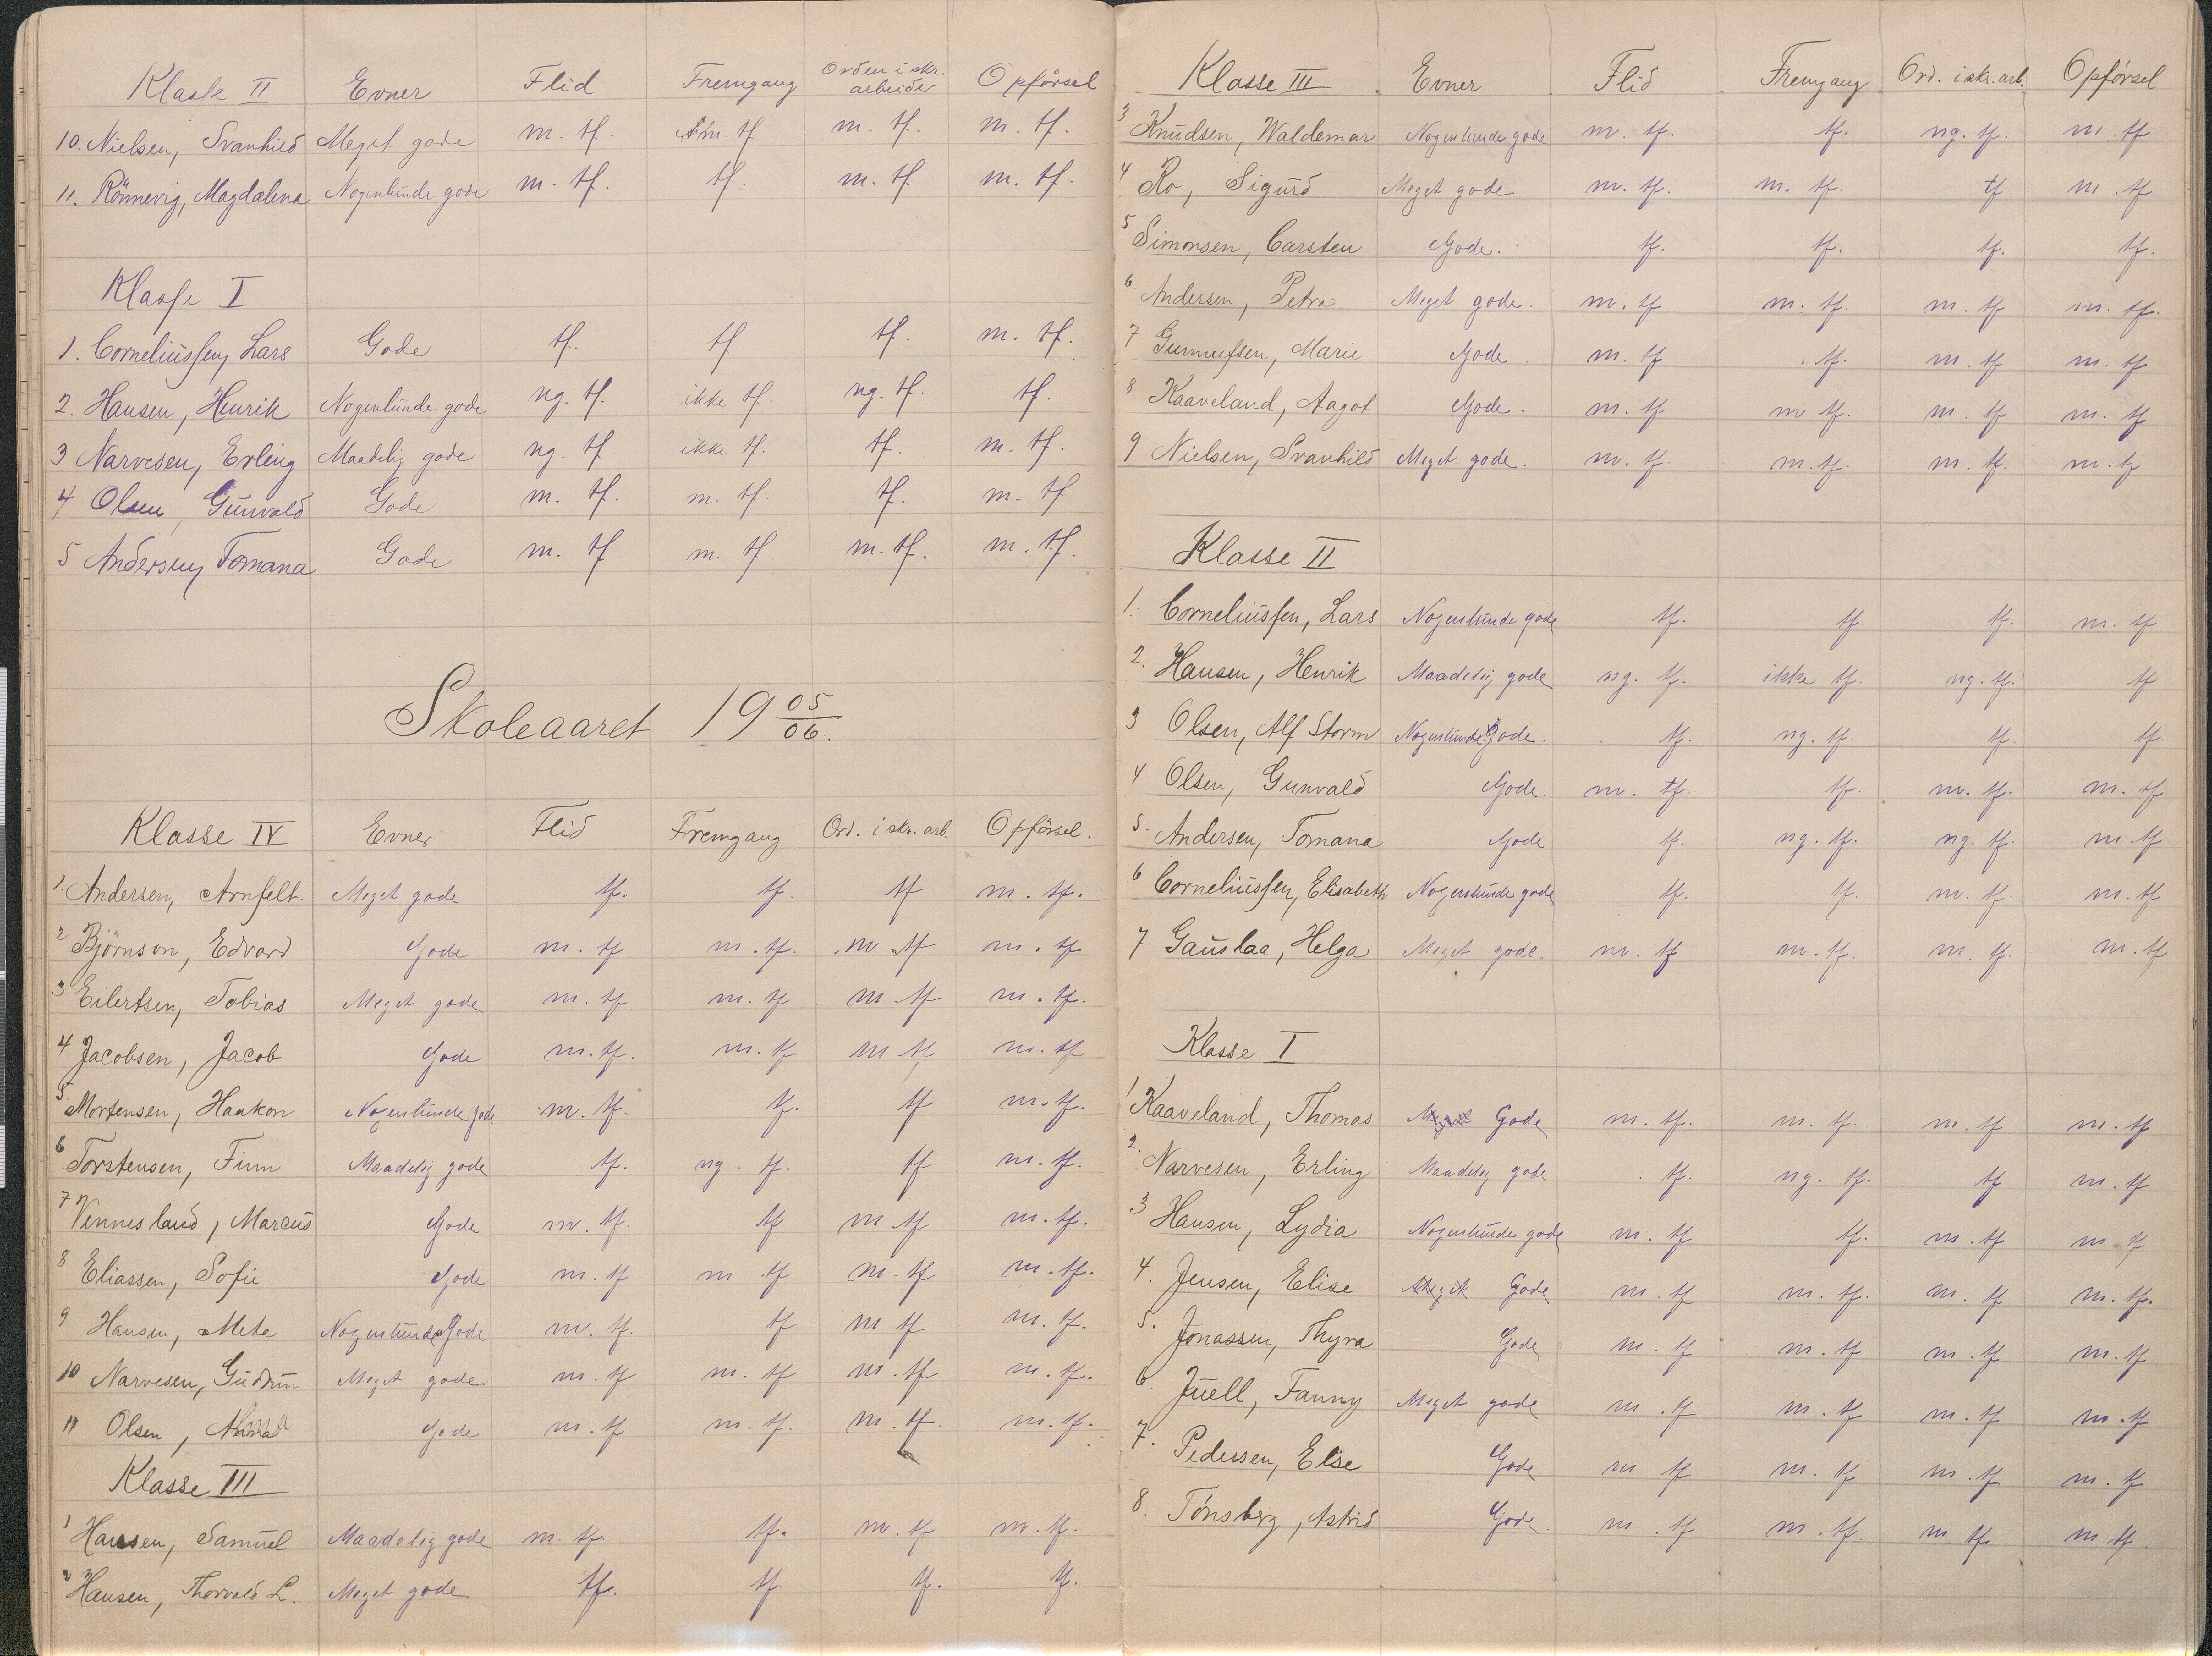 Klasse II Evner Flid Fremgang Orden i skr. arbeider Opførsel
10. Nielsen, Svanhild Meget gode m. tf. m. tf m. tf. m. tf.
11. Rönnevig, Magdalena Nogenlunde gode m. tf. tf. m. tf m. tf.
Klasse I
1. Corneliussen, Lars Gode tf. tf. tf. m. tf.
2. Hansen, Henrik Nogenlunde gode ng. tf. ikke tf. ng. tf. tf.
3 Narvesen, Erling Maadelig gode ng. tf. ikke tf. tf. m. tf.
4 Olsen, Gunvald Gode m. tf. m. tf. tf. m. tf
5 Andersen, Tomana Gode m. tf. m. tf. m. tf. m. tf.
Skoleaaret 19 05/06.
Klasse IV Evner Flid Fremgang Ord. i skr. arb. Opførsel.
1. Andersen, Arnfelt. Meget gode tf. tf. tf m. tf.
2 Björnson, Edvard Gode m. tf m. tf. m tf m. tf
3 Eilertsen, Tobias Meget gode m. tf. m. tf m tf m. tf.
4 Jacobsen, Jacob Gode m. tf. m. tf m tf m. tf
5 Mortensen, Haakon Nogenlunde gode m. tf. tf. tf m. tf.
6 Torstensen, Finn Maadelig gode tf. ng. tf. tf m. tf.
7 Vennesland, Marcus Gode m. tf. tf m tf m. tf.
8 Eliassen, Sofie Gode m. tf m tf m. tf m. tf.
9 Hansen, Meta Nogenlunde Gode m. tf. tf m tf m. tf.
10 Narvesen, Gudrun Meget gode m. tf m. tf m. tf m. tf.
11 Olsen, Gode m. tf m. tf. m. tf. m. tf.
Klasse III
1 Hansen, Samuel Maadelig gode m. tf. tf. m. tf m. tf.
2 Hansen, Thorvald L. Meget gode tf. tf. tf. tf.
Klasse III Evner Flid Fremgang Ord. i skr. arb. Opførsel
3 Knudsen, Waldemar Nogenlunde gode m. tf. tf. ng. tf. m. tf
4 Ro, Sigurd Meget gode m. tf. m. tf. tf m. tf
5 Simonsen, Carsten Gode. tf. tf. tf. tf.
6 Andersen, Petra Meget gode. m. tf m. tf. m. tf m. tf.
7 Gunnufsen, Marie Gode. m. tf tf. m. tf m. tf
8 Kaaveland, Aagot Gode. m. tf m tf. m. tf m. tf
9 Nielsen, Svanhild Meget gode. m. tf. m. tf. m. tf. m. tf
Klasse II
1. Corneliussen, Lars Nogenlunde gode tf. tf. tf. m. tf
2. Hansen, Henrik Maadelig gode ng. tf. ikke tf. ng. tf. tf
3 Olsen, Alf Storm Nogenlunde Gode. tf. ng. tf. tf. tf.
4 Olsen, Gunvald Gode. m. tf. tf. m. tf. m. tf
5. Andersen, Tomana Gode tf. ng. tf. ng. tf. m. tf
6 Corneliussen, Elisabeth Nogenlunde gode tf. tf. m. tf. m. tf
7 Gauslaa, Helga Meget gode. m. tf m. tf. m. tf. m. tf
Klasse I
1 Kaaveland, Thomas Meget Gode m. tf. m. tf. m. tf m. tf
2. Narvesen, Erling Maadelig gode tf. ng. tf. tf m. tf
3 Hansen, Lydia Nogenlunde gode m. tf tf. m. tf m. tf
4. Jensen, Elise Meget Gode m. tf m. tf. m. tf m. tf.
5. Jonassen, Thyra Gode m. tf m. tf m. tf m. tf
6. Juell, Fanny Meget gode m. tf m. tf m. tf m. tf
7. Pedersen, Else Gode m tf m. tf m. tf m. tf
8. Tönsberg, Astrid Gode. m. tf. m. tf. m. tf m tf.